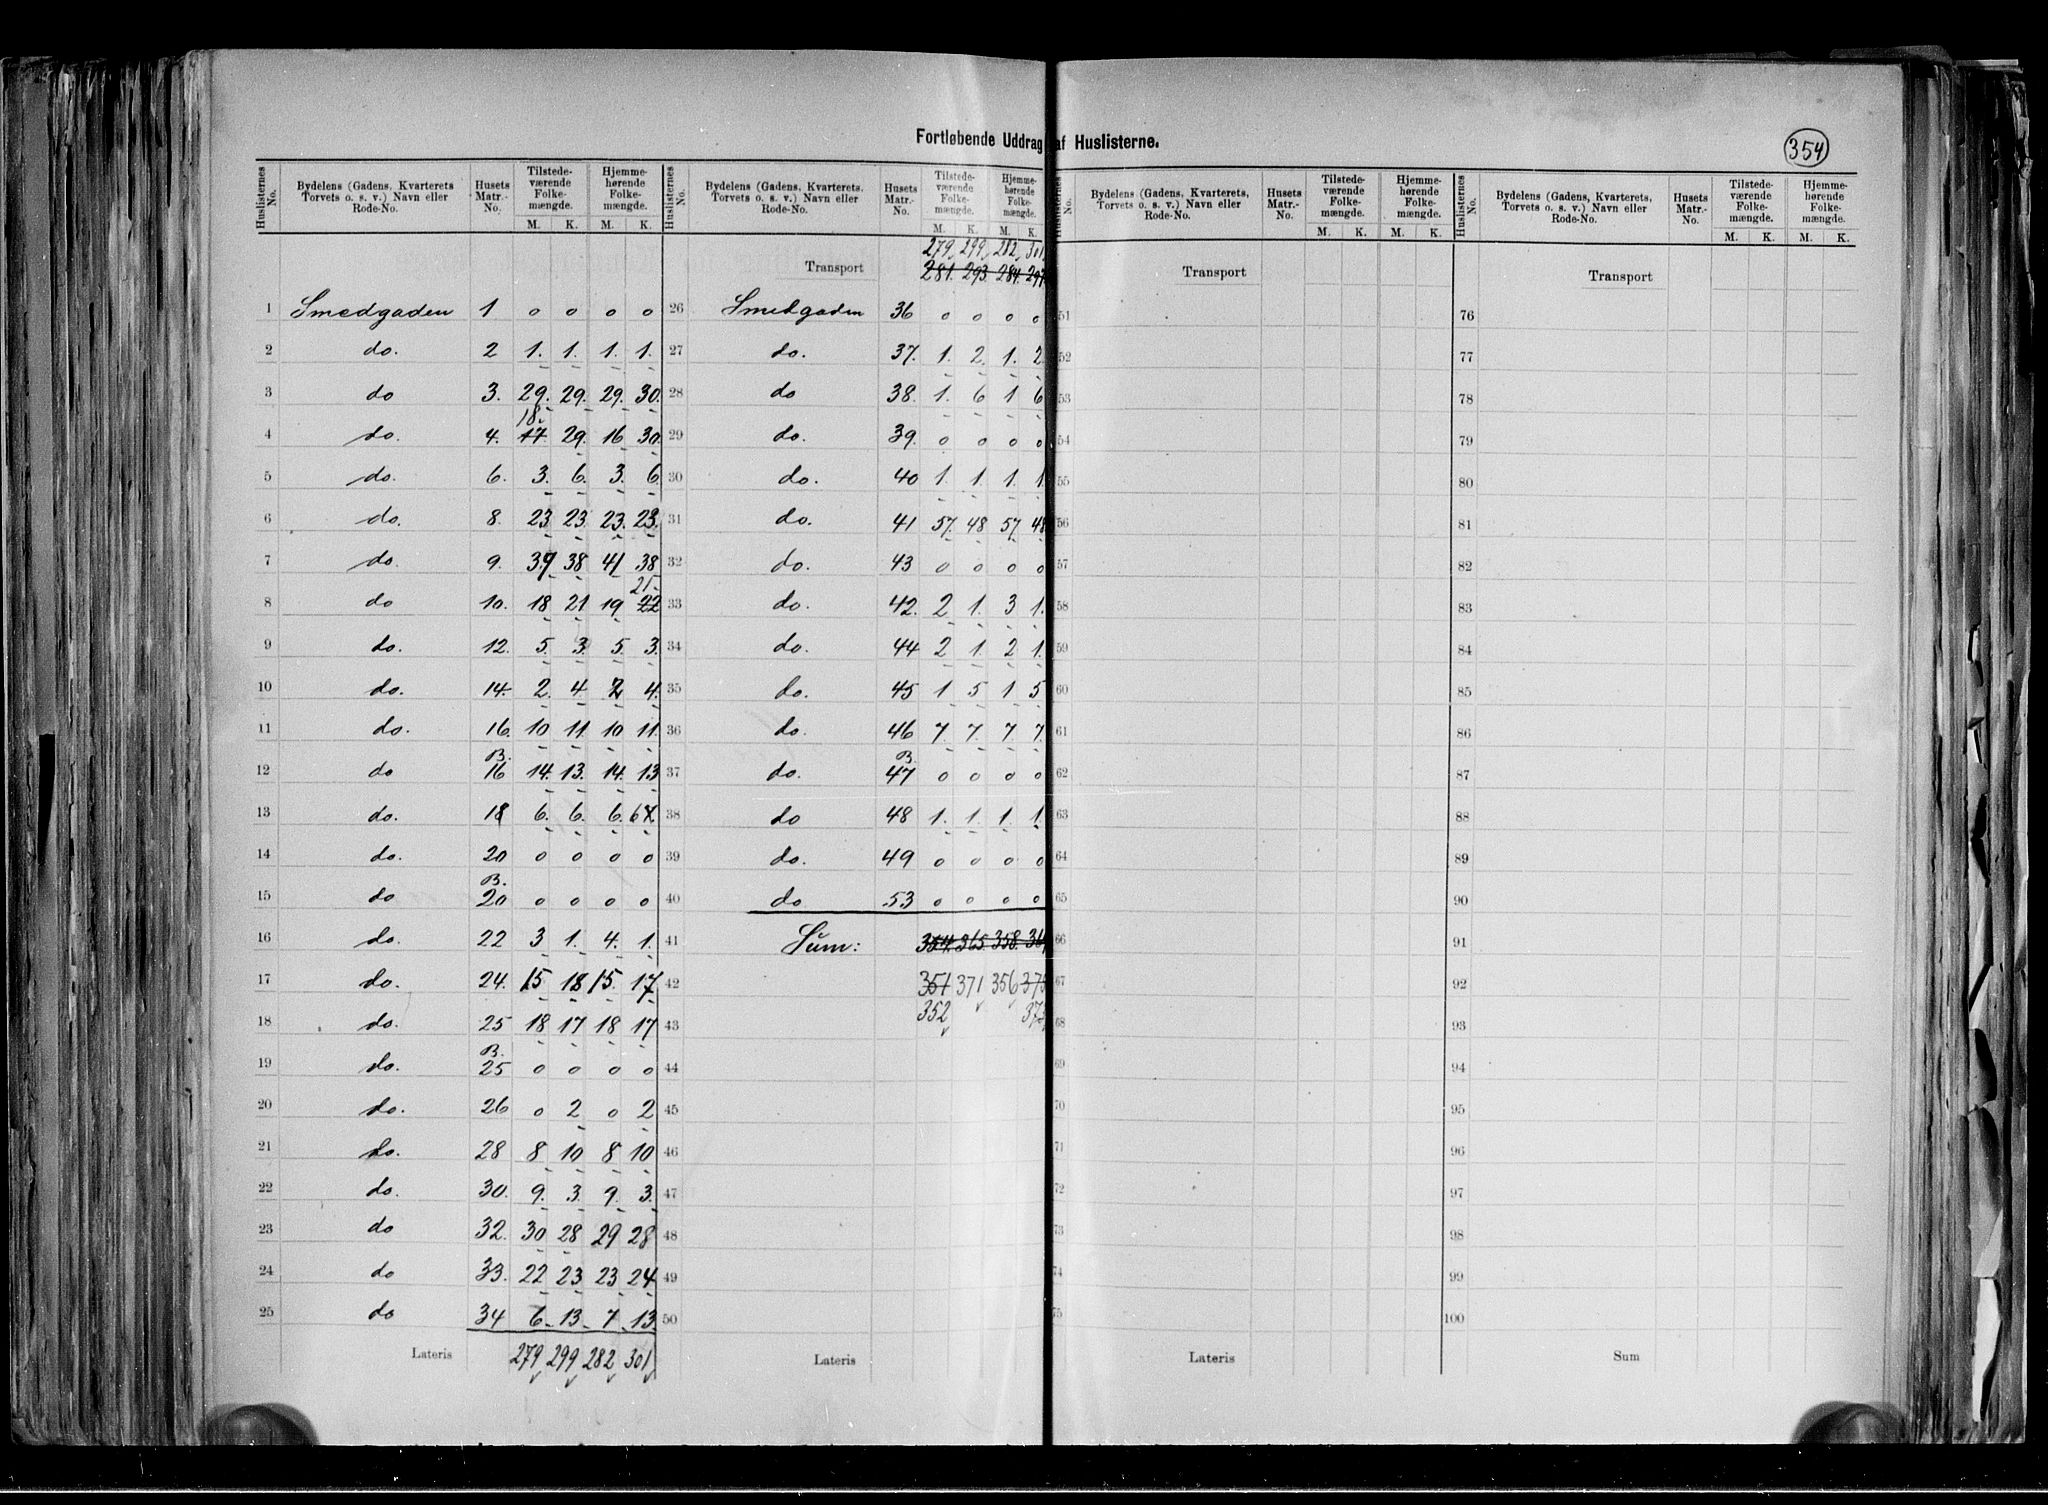 Fortløbende Uddrag af Huslisterne.
354
Huslisternes No. Bydelens (Gadens, Kvarterets Torvets o. s. v.) Navn eller Rode-No. Husets Matr.-No. Tilstedeværende Folkemængde. M. K. Hjemmehørende Folkemængde. M. K.
1 Smedgaden 1 0 0 0 0
2 do. 2 1. 1. 1. 1.
3 do 3. 29. 29. 29. 30.
18.
4 do. 4. 17 29. 16 30.
5 do. 6. 3. 6. 3. 6.
6 do. 8. 23. 23. 23. 23.
7 do. 9. 39 38 41 38
21
8 do 10. 18 21 19 22
9 do. 12. 5. 3. 5. 3.
10 do. 14. 2. 4. 2 4.
11 do. 16. 10 11. 10 11.
B.
12 do 16 14. 13. 14. 13
13 do. 18 6. 6. 6. 6 7.
14 do. 20 0 0 0 0
B.
15 do 20 0 0 0 0
16 do. 22 3 1. 4. 1.
17 do. 24. 15 18 15. 17
18 do. 25 18 17 18 17
B.
19 do. 25 0 0 0 0
20 do. 26 0 2 0 2
21 do. 28 8 10 8 10
22 do. 30. 9. 3. 9. 3.
23 do 32. 30 28 29 28
24 do 33. 22 23 23 24
25 do 34 6 13 7 13.
Lateris 279 299 282 301
Huslisternes No. Bydelens (Gadens, Kvarterets. Torvets o. s. v.) Navn eller Rode-No. Husets Matr.-No. Tilstedeværende Folkemængde. M. K. Hjemmehørende Folkemængde. M. K.
279 299 282 301
Transport 281. 293. 284. 297
26 Smedgaden 36 0 0 0 0
27 do. 37. 1. 2. 1. 2.
28 do 38. 1. 6 1 6
29 do. 39. 0 0 0 0
30 do. 40 1. 1. 1. 1.
31 do. 41 57. 48 57. 48
32 do. 43 0 0 0 0
33 do. 42. 2 1. 3 1.
34 do. 44 2 1. 2 1.
35 do. 45 1 5 1 5
36 do. 46 7. 7. 7. 7.
B.
37 do. 47 0 0 0 0
38 do 48 1. 1. 1. 1.
39 do. 49 0 0 0 0
40 do 53 0 0 0 0
41 Sum: 354. 365. 358.
42 351 371 356
43 352 373
44
45
46
47
48
49
50
Lateris
Huslisternes No. Bydelens (Gadens, Kvarterets, Torvets o. s. v.) Navn eller Rode-No. Husets Matr.-No. Tilstedeværende Folkemængde. M. K. Hjemmehørende Folkemængde. M. K.
Transport
51
52
53
54
55
56
57
58
59
60
61
62
63
64
65
66
67
68
69
70
71
72
73
74
75
Lateris
Huslisternes No. Bydelens (Gadens, Kvarterets, Torvets o. s. v.) Navn eller Rode-No. Husets Matr.-No. Tilstedeværende Folkemængde. M. K. Hjemmehørende Folkemængde. M. K.
Transport
76
77
78
79
80
81
82
83
84
85
86
87
88
89
90
91
92
93
94
95
96
97
98
99
100
Sum